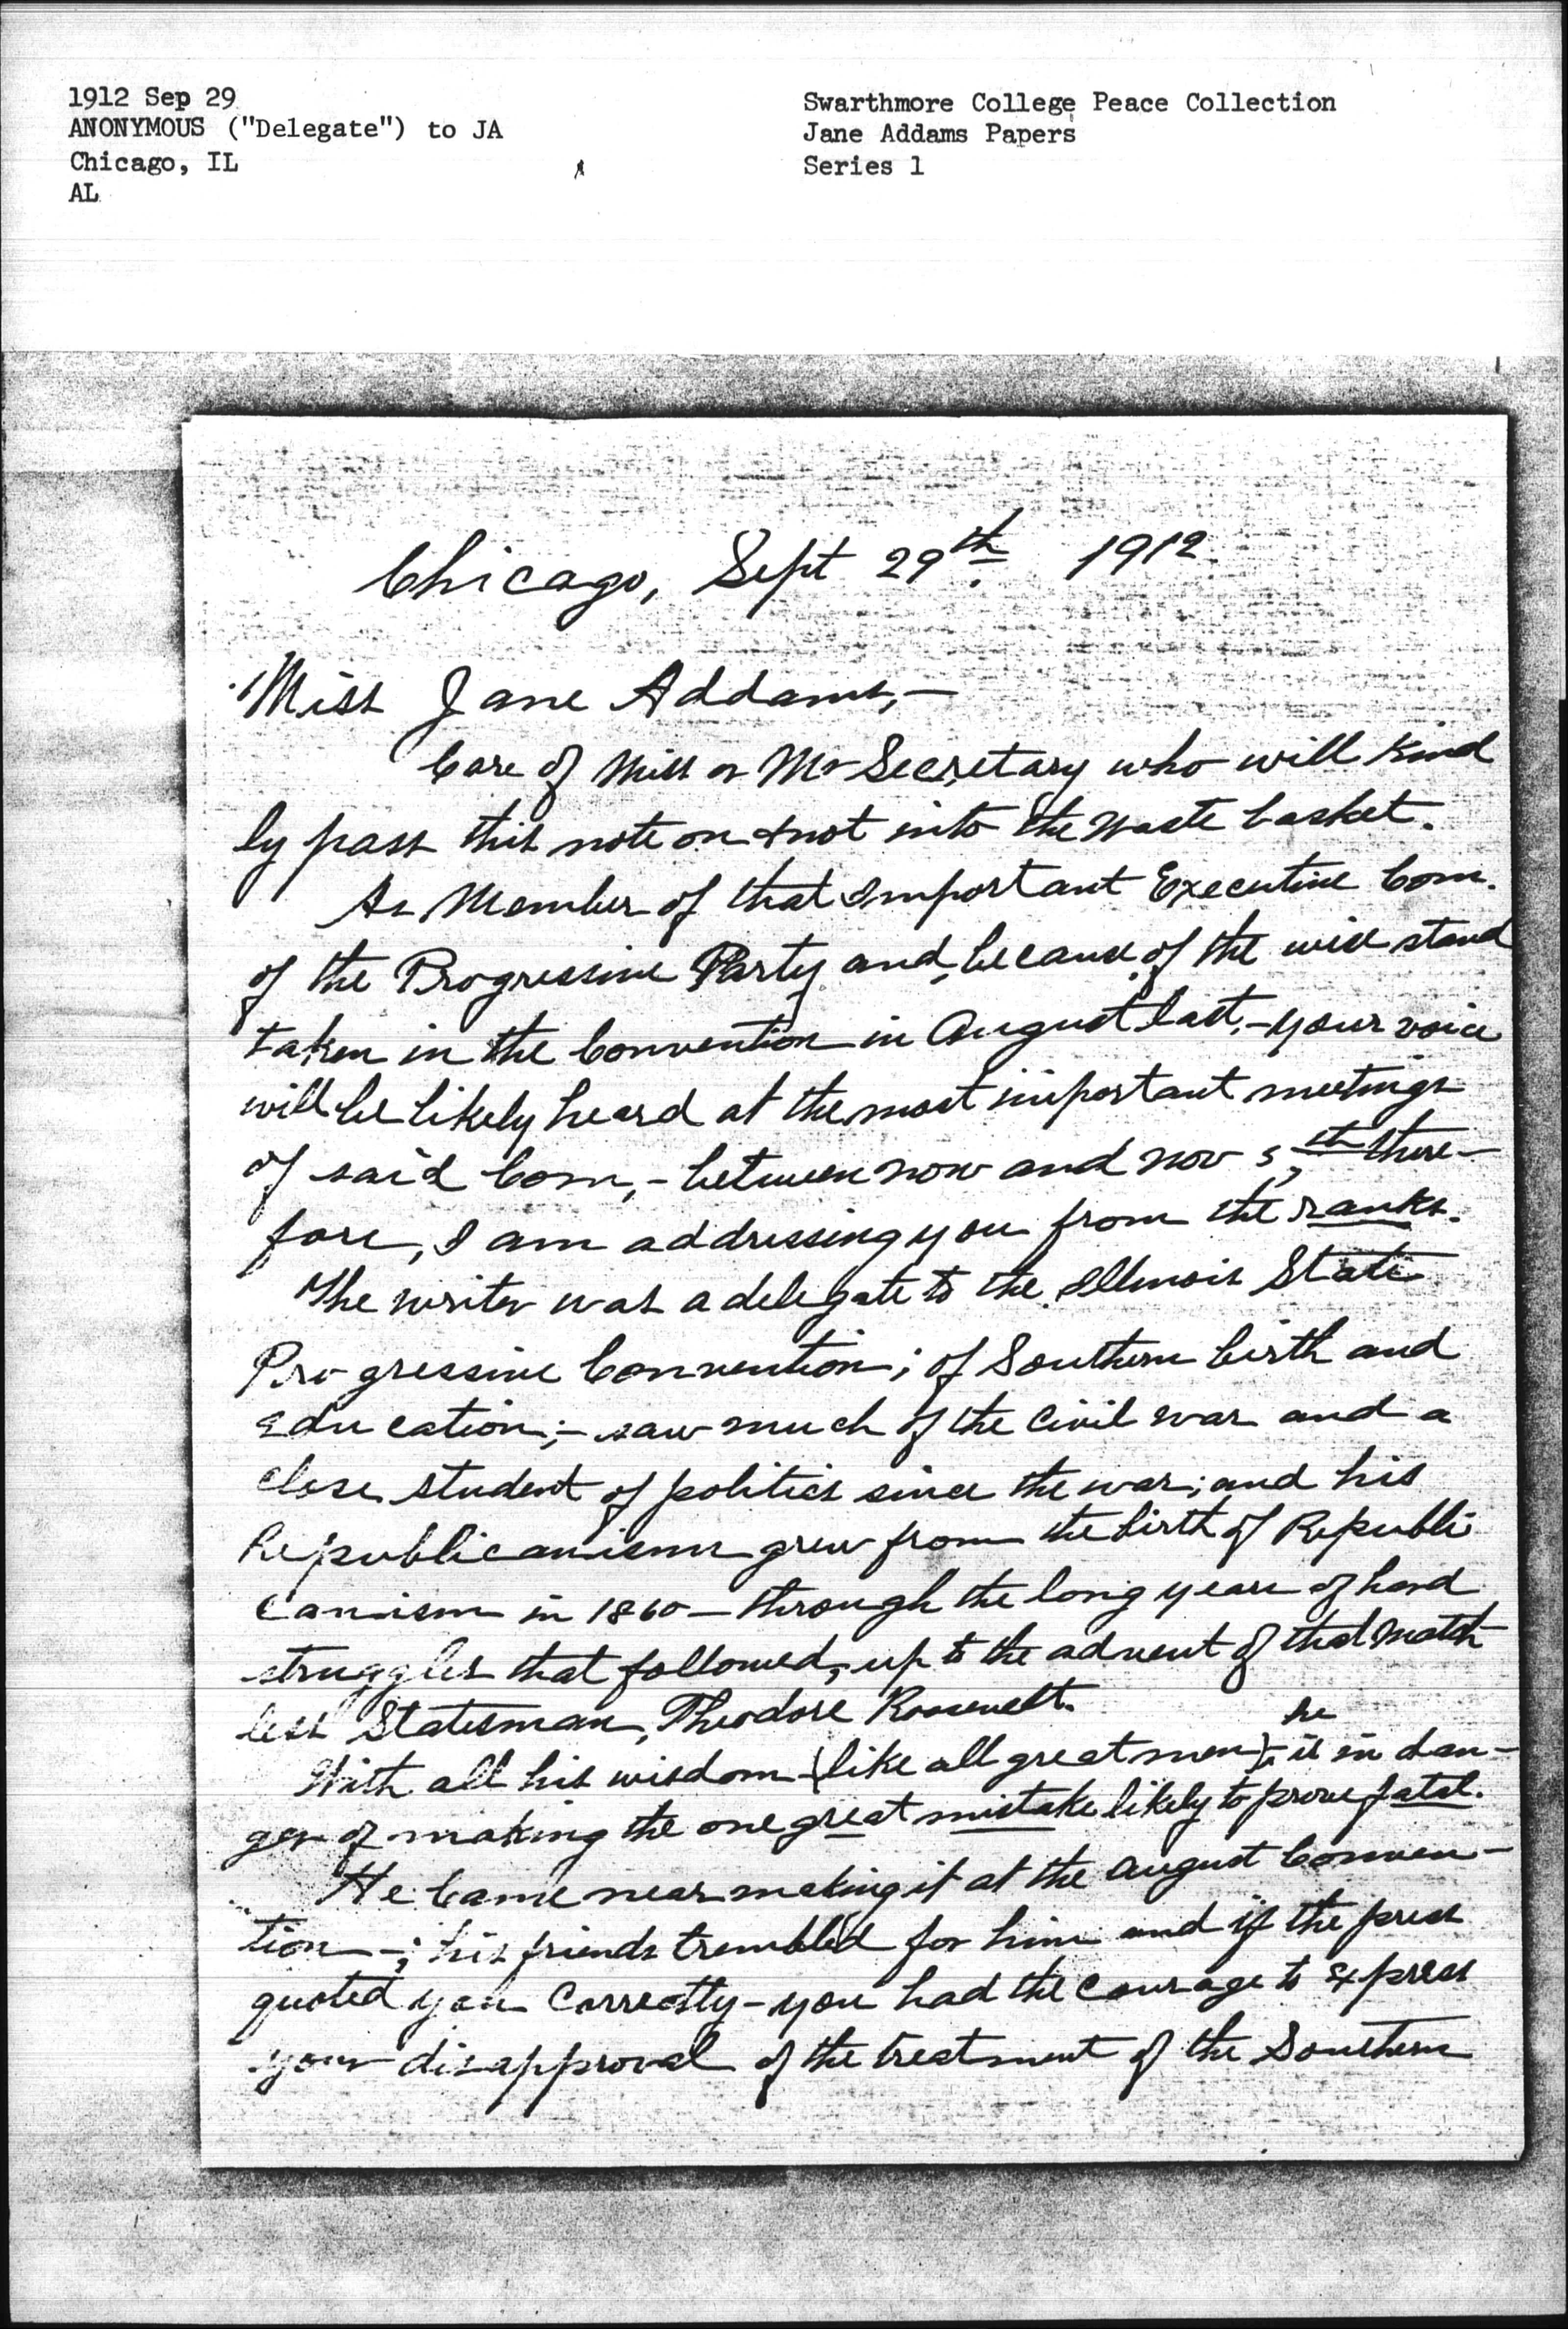 1912 Sep 29
ANONYMOUS ("Delegate") to JA
Chicago, IL
AL
Swarthmore College Peace Collection
Jane Addams Papers
Series 1
Chicago, Sept 29th. 1912
Miss Jane Addams,—
Care of Miss or Mr Secretary who will kind
ly pass this note on & not into the waste basket.
As Member of that important Executive Com.
of the Progressive Party and, because of the wise stand
taken in the Convention in August last,—your voice
will be likely heard at the most important meetings
of said Com,—between now and Nov 5,th there—
fore, I am addressing you from the ranks.
The writer was a delegate to the Illinois State
Progressive Convention; of Southern birth and
Education;—saw much of the Civil War and a
close student of politics since the war; and his
Republicanism grew from the birth of Republi
canism in 1860—through the long years of hard
struggles that followed, up to the advent of that match
less Statesman, Theodore Roosevelt.
With all his wisdom (like all great men), he is in dan—
ger of making the one great mistake likely to prove fatal.
He came near making it at the August Conven—
tion—; his friends trembled for him and if the press
quoted you correctly—you had the courage to express
your disapproval of the treatment of the Southern